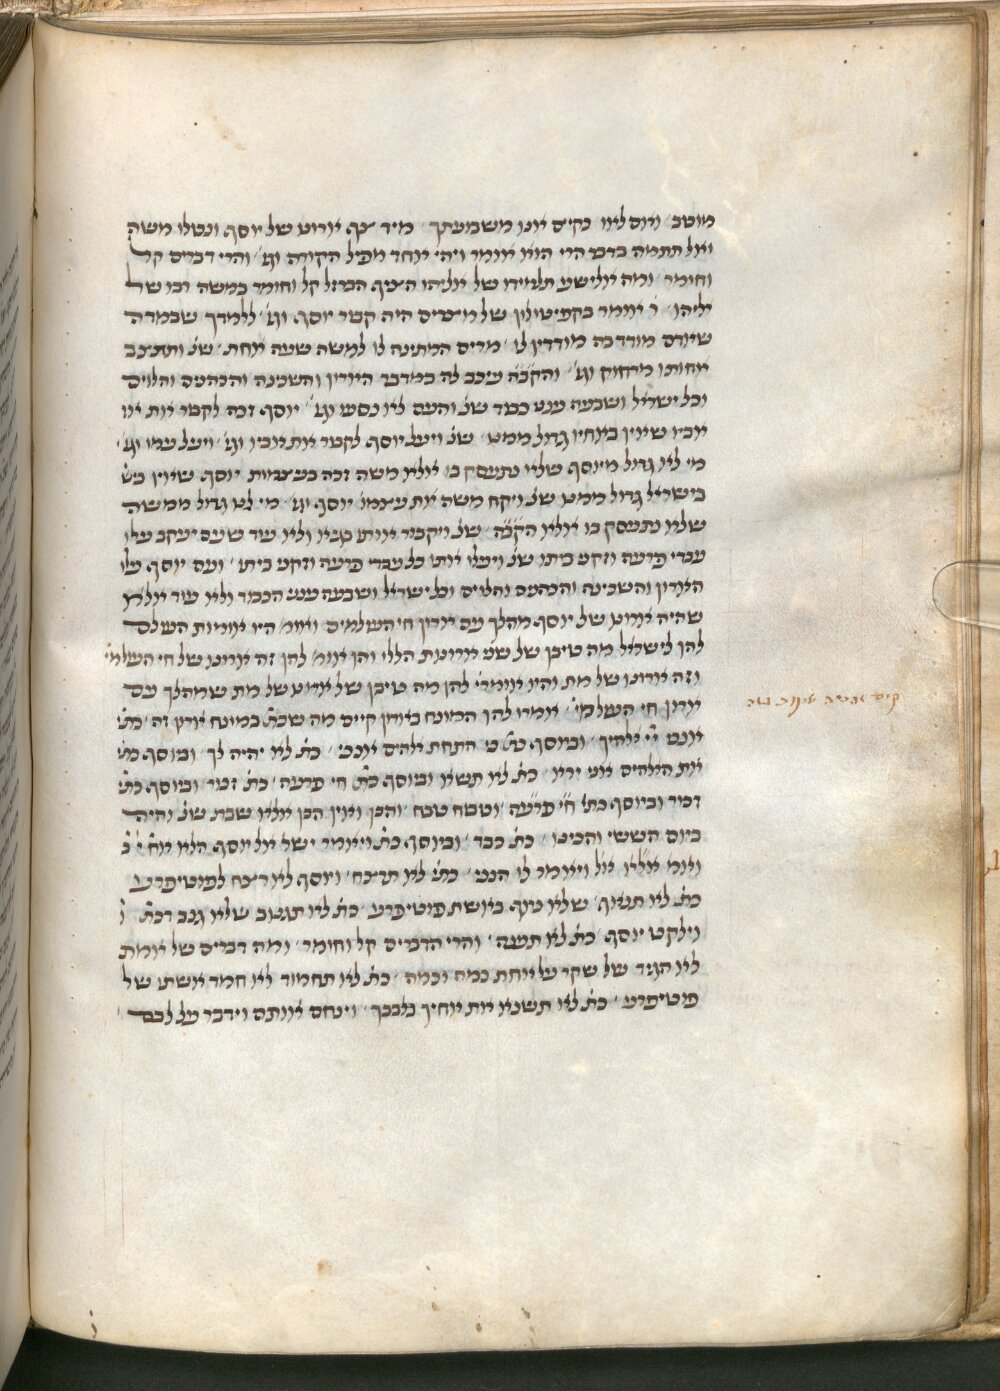 מוטב ואם לאו נקיים אנו משבועתך מיד צף ארונו של יוסף ונטלו משה
ואל תתמה בדבר הרי הוא אומר ויהי האחד מפיל הקורה וגו' והרי דברים קל
וחומר ומה אלישע תלמידו של אליהו הציף הברזל קל וחומר במשה רבו של
אליהו ר' אומר בקפיטולין של מצרים היה קבור יוסף וגו' ללמדך שבמדה
שאדם מודד בה מודדין לו מרים המתינה לו למשה שעה אחת שנ' ותתצב
אחותו מרחוק וגו' והק'ב'ה עיכב לה במדבר הארון והשכינה והכהנים והלוים
וכל ישראל ושבעה ענני כבוד שנ' והעם לא נסע וגו' יוסף זכה לקבור את אביו
שאין באחיו גדול ממנו שנ' ויעל יוסף לקבור את אביו וגו' ויעל עמו וגו'
מי לנו גדול מיוסף שלא נתעסק בו אלא משה זכה בעצמות יוסף שאין
בישראל גדול ממנו שנ' ויקח משה את עצמות יוסף וגו' מי לנו גדול ממשה
שלא נתעסק בו אלא הק'ב'ה שנ' ויקבור אותו בגיא ולא עוד שעם יעקב עלו
עבדי פרעה וזקני ביתו שנ' ויעלו אתו כל עבדי פרעה זקני ביתו ועם יוסף עלו
הארון והשכינה והכהנים והלוים וכל ישראל ושבעה ענני הכבוד ולא עוד אלא
שהיה ארונו של יוסף מהלך עם ארון חי העולמים והיו אומות העולם
להן לישראל מה טיבן של שני ארונות הללו והן אומ' להן זה ארונו של חי העולמי'
וזה ארונו של מת והיו אומרי' להן מה טיבן של ארונו של מת שמהלך עם
ארון חי העולמי' אומרו להן המונח בארון קיים מה שכת' במונח בארון זה כת'
אנכי י'י אלהיך וביוסף כת' כי התחת אלהים אנכי כת' לא יהיה לך וביוסף כת'
את האלהים אני ירא כת' לא תשא וביוסף כת' חי פרעה כת' זכור וביוסף כת'
זכור וביוסף כת' חי פרעה וטבוח טבח והכן ואין הכן אלא שבת שנ' והיה
ביום הששי והכינו כת' כבד וביוסף כת' ויאמר ישראל אל יוסף הלא אחיך
ויאמר לו הנני כת' לא תרצח ויוסף לא רצח לפוטיפרע
כת' לא תנאף שלא נאף באשת פוטיפרע כת' לא תגנוב שלא גנב דכת'
וילקט יוסף כת' לא תענה והרי הדברים קל וחומר ומה דברים של אמת
לא הגיד של שקר על אחת כמה וכמה כת' לא תחמוד לא חמד אשתו של
פוטיפרע כת' לא תשנא את אחיך בלבבך וינחם אותם וידבר על לבם